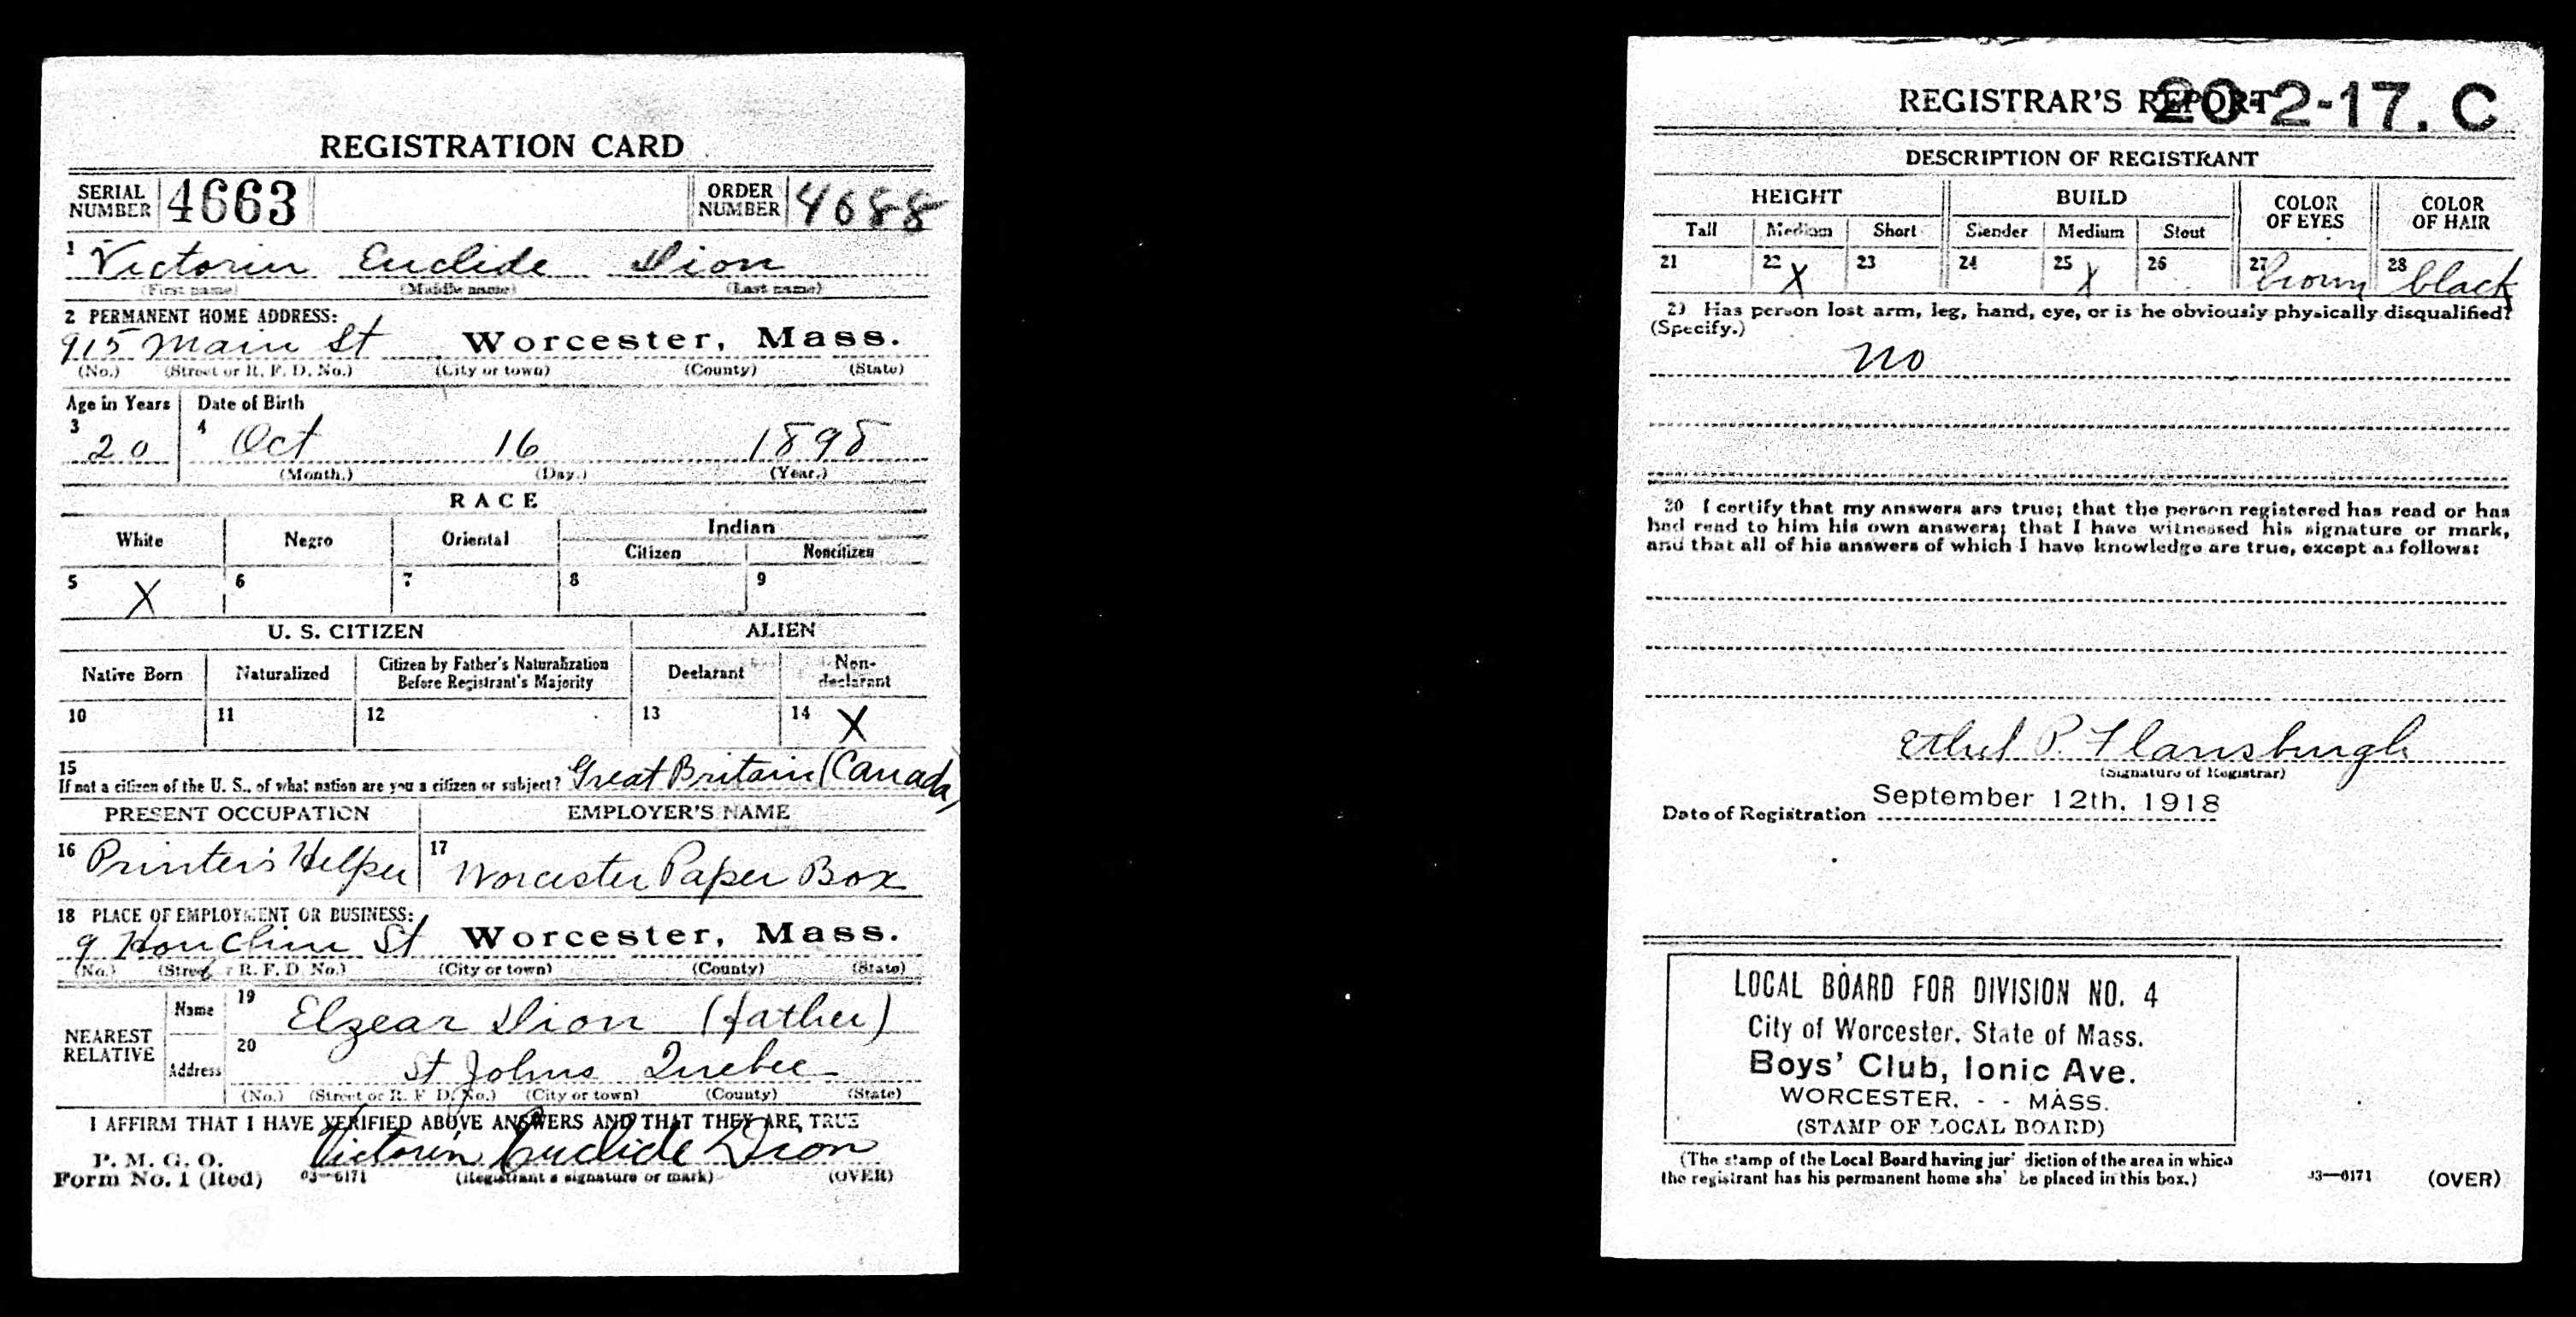 REGISTRATION CARD
SERIAL NUMBER 4663 ORDER NUMBER 4688
1 Victorin Euclide Dion
(First name) (Middle name) (Last name)
2 PERMANENT HOME ADDRESS:
915 Main St Worcester, Mass.
(No.) (Street or R. F. D. No.) (City or town) (County) (State)
Age in Years Date of Birth
3 20 4 Oct 16 1898
(Month.) (Day.) (Year.)
RACE
White Negro Oriental Indian
Citizen Noncitizen
5 X 6 7 8 9
U. S. CITIZEN ALIEN
Native Born Naturalized Citizen by Father's Naturalization Before Registrant's Majority Declarant Non-declarant
10 11 12 13 14 X
15 If not a citizen of the U. S., of what nation are you a citizen or subject? Great Britain (Canada)
PRESENT OCCUPATION EMPLOYER'S NAME
16 Printer's Helper 17 Worcester Paper Box
18 PLACE OF EMPLOYMENT OR BUSINESS:
9 St Worcester, Mass.
(No.) (Street or R. F. D. No.) (City or town) (County) (State)
NEAREST RELATIVE Name 19 Elzear Dion (father)
Address 20 St Johns Quebec
(No.) (Street or R. F. D. No.) (City or town) (County) (State)
I AFFIRM THAT I HAVE VERIFIED ABOVE ANSWERS AND THAT THEY ARE TRUE
P. M. G. O. Victorin Euclide Dion
Form No. 1 (Red) 03—6171 (Registrant's signature or mark) (OVER)
REGISTRAR'S REPORT 20-2-17. C
DESCRIPTION OF REGISTRANT
HEIGHT BUILD COLOR OF EYES COLOR OF HAIR
Tall Medium Short Slender Medium Stout
21 22 X 23 24 25 X 26 27 brown 28 black
29 Has person lost arm, leg, hand, eye, or is he obviously physically disqualified?
(Specify.)
no
30 I certify that my answers are true; that the person registered has read or has
had read to him his own answers; that I have witnessed his signature or mark,
and that all of his answers of which I have knowledge are true, except as follows:
Ethel P. Flansburgh
(Signature of Registrar)
Date of Registration September 12th, 1918
LOCAL BOARD FOR DIVISION NO. 4
City of Worcester, State of Mass.
Boys' Club, Ionic Ave.
WORCESTER, - - MASS.
(STAMP OF LOCAL BOARD)
(The stamp of the Local Board having jurisdiction of the area in which
the registrant has his permanent home shall be placed in this box.)
03—6171 (OVER)